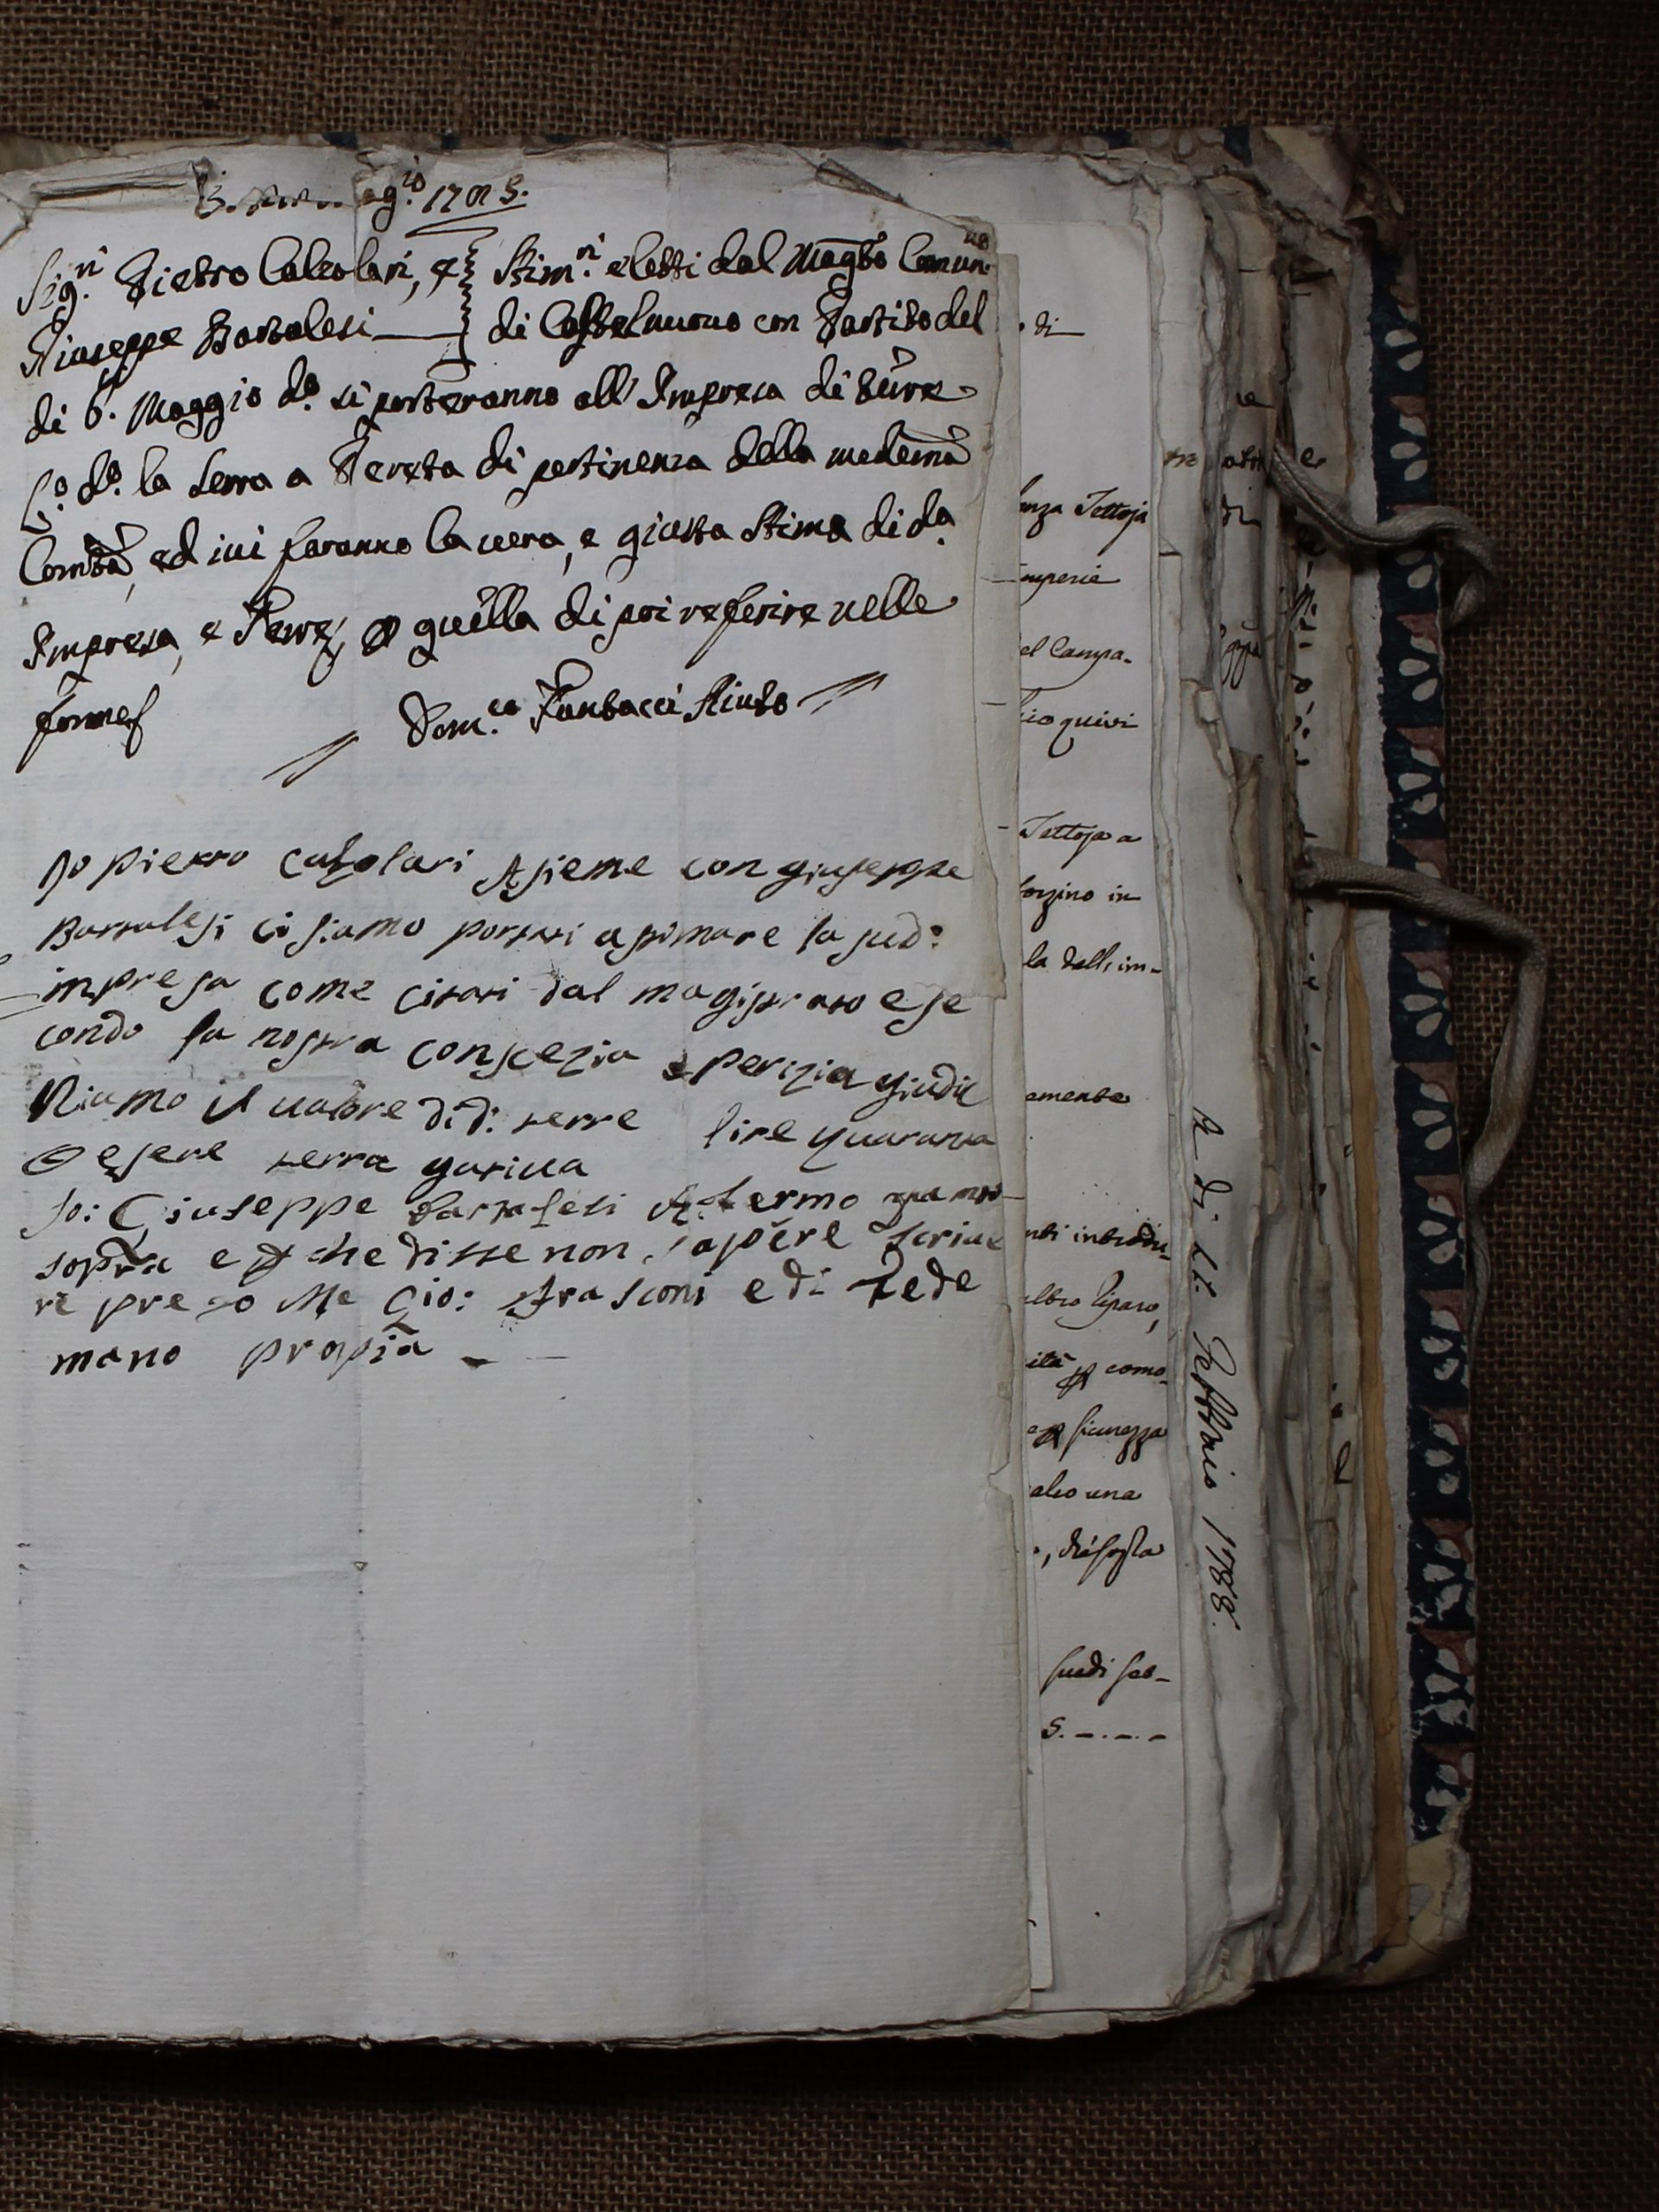 Sig.ri Pietro Calzolari, e Stim.ri eletti dal Mag.to Comun.
Giuseppe Bartolesi di Castelnuovo con Partito del
di 6. Maggio do. si porteranno all'Impresa di
do. la Serra a di pertinenza della medema
Comtà, ed ivi faranno la vera, e giusta Stima di da.
Impresa, e Terre, quella di poi referire nelle
forme
Dom.co Fantacci Aiuto
Io pietro calzolari Asieme con giuseppe
Bartalesi ci siamo portati a stimare la sud:
impresa come citati dal magistrato e se
condo la nostra conscezia e perizia giudic
hiamo il valore di d: terre lire quaranta
esere terra gativa
Io: Giuseppe Bartalesi Afermo quanto
sopra e che disse non sapere scrive
re prego Me Gio: Frasconi e di Fede
mano propia
di
anza Tettoja
mperie
el Campa-
io quivi
Tettoja a
in
la dell'im-
amente
nti introdu-
altro liparo,
ità p como-
e p sicurezza
alro una
sudi set-
S.-.-.-
A di Febbraio 1788.